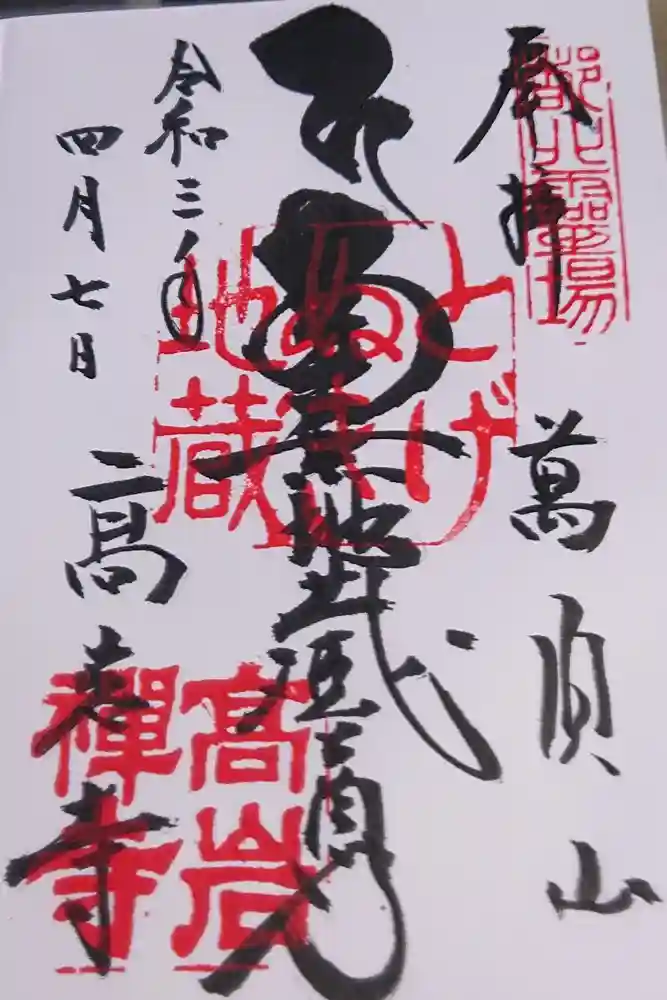 奉拝
都八霊場
萬頂山
南無地蔵
とげ
ぬき
地蔵
令和三年
四月七日
髙岩寺
高岩
禪寺